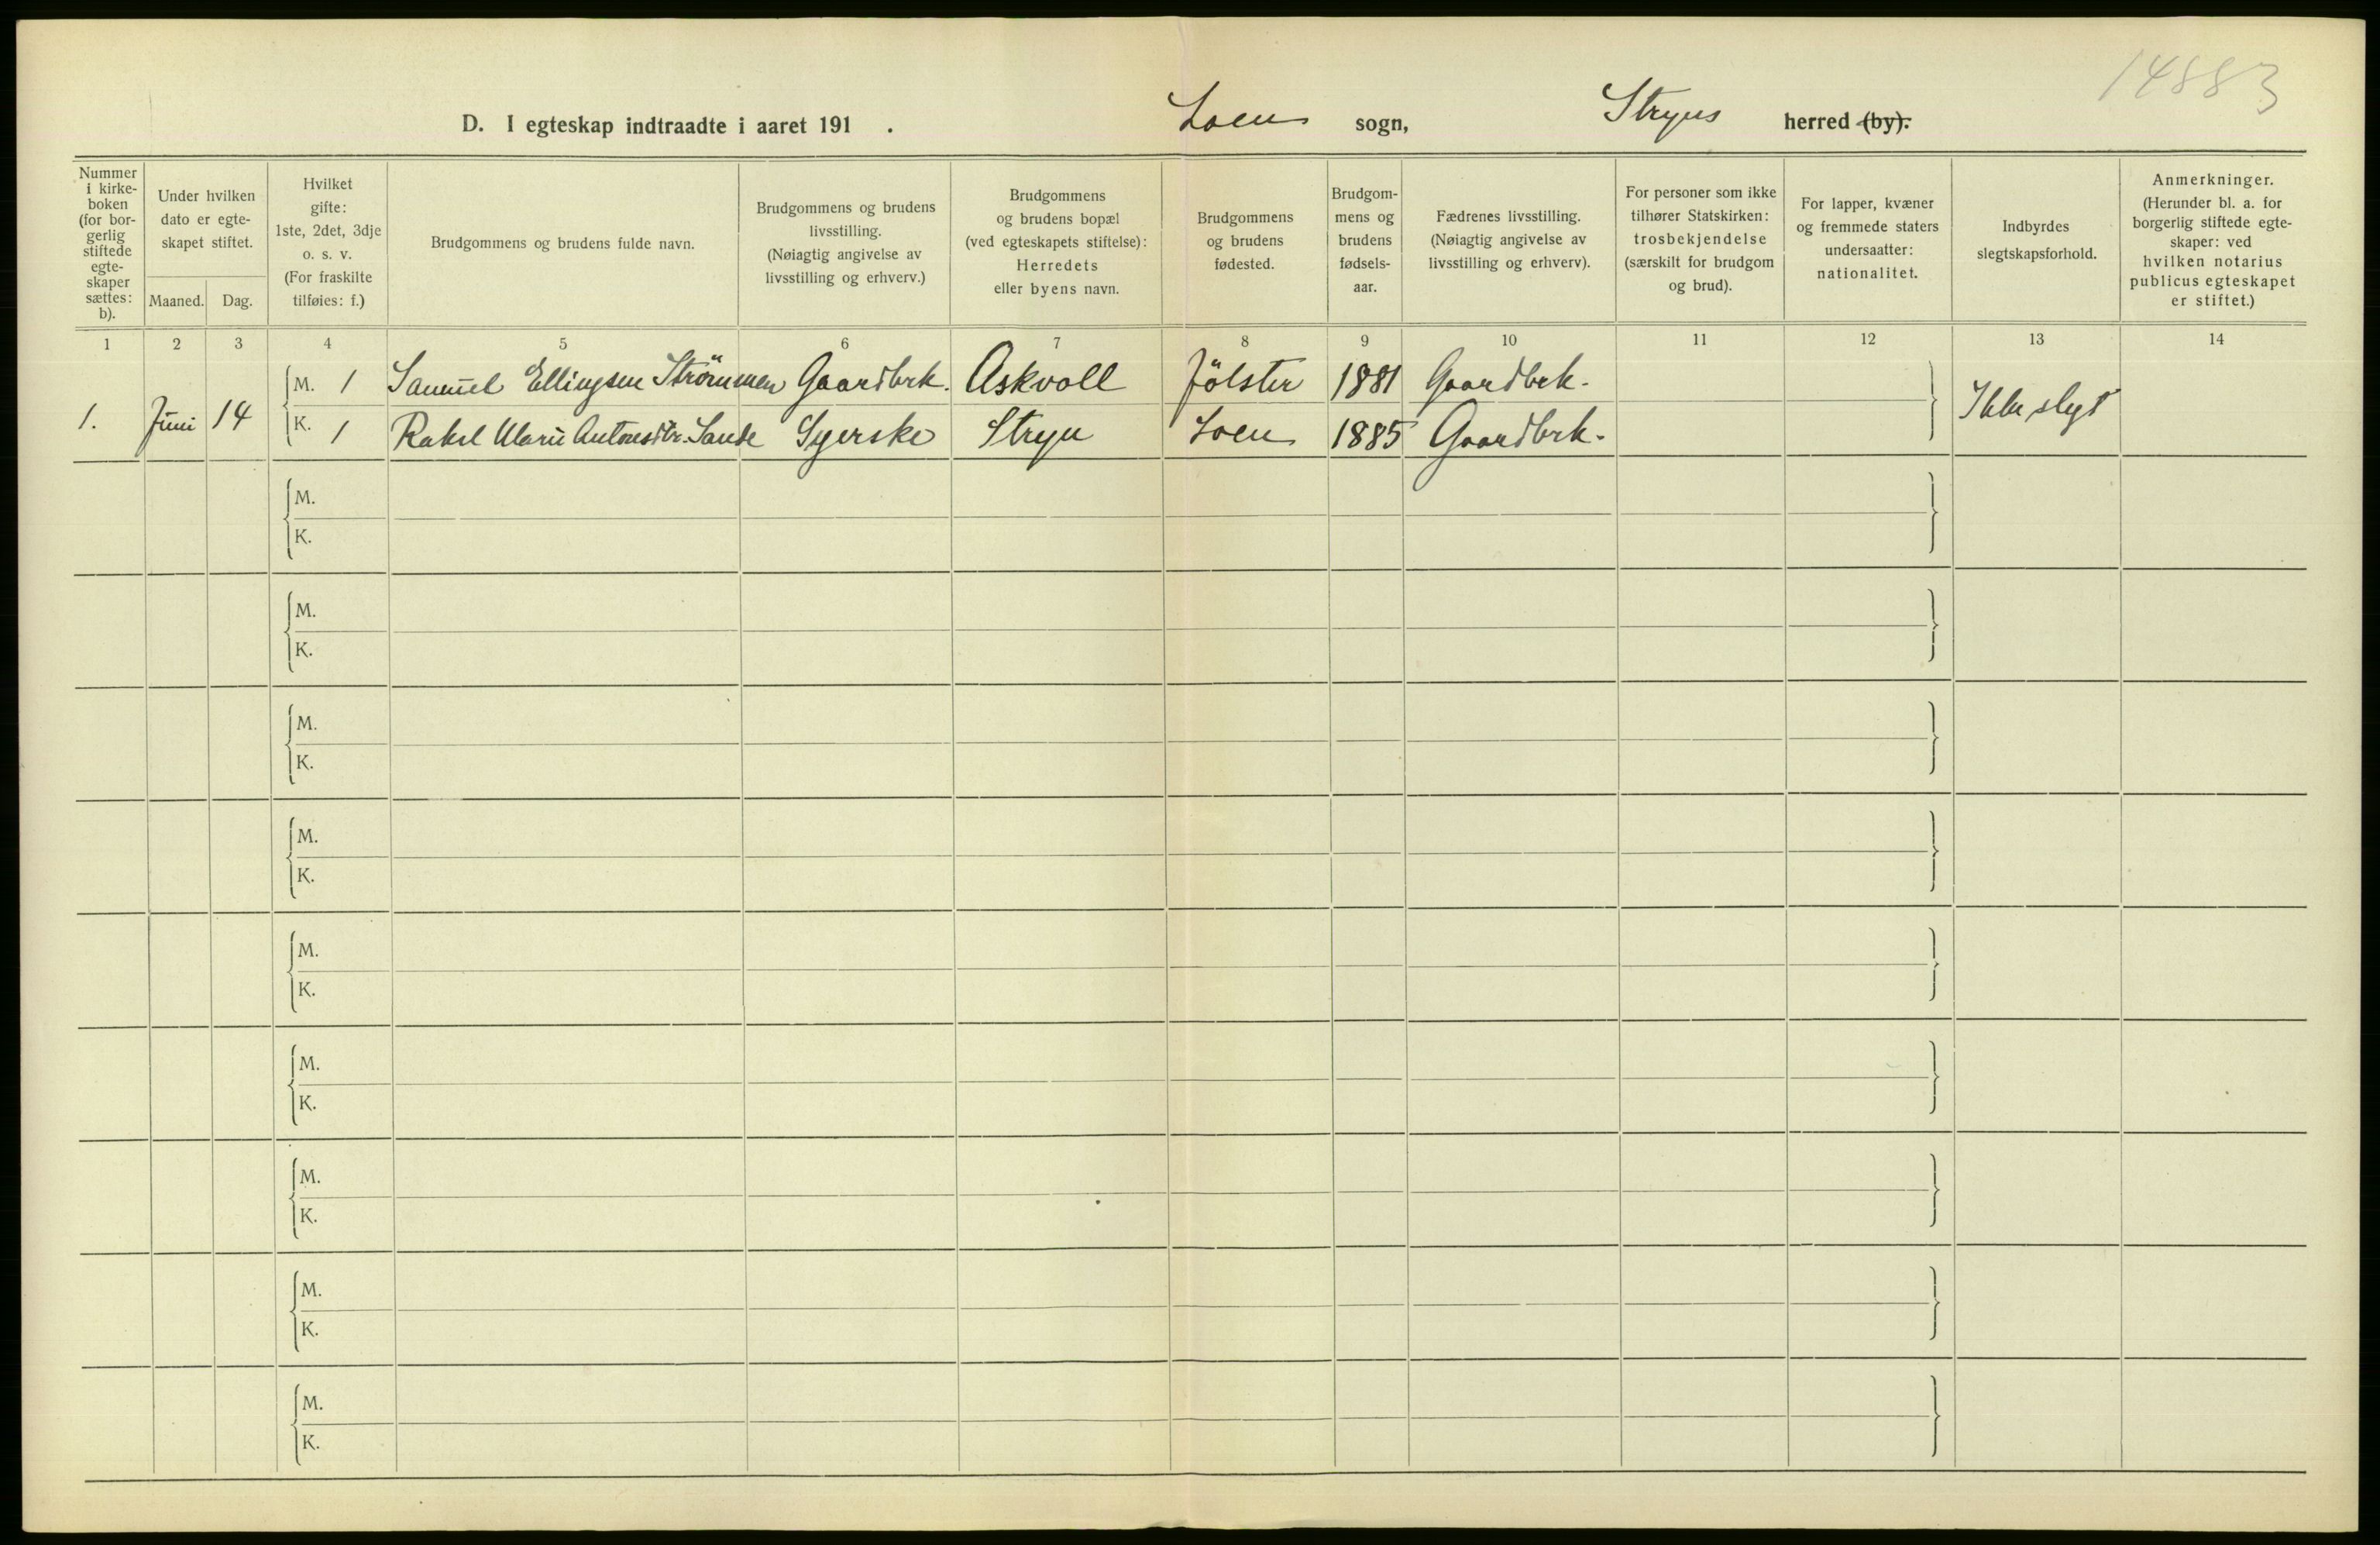 14883
D. I egteskap indtraadte i aaret 191 . Loen sogn, Stryns herred (by).
Nummer
i kirke-
boken
(for bor-
gerlig
stiftede
egte-
skaper
sættes:
b).
Under hvilken
dato er egte-
skapet stiftet.
Maaned. Dag.
Hvilket
gifte:
1ste, 2det, 3dje
o. s. v.
(For fraskilte
tilføies: f.)
Brudgommens og brudens fulde navn.
Brudgommens og brudens
livsstilling.
(Nøiagtig angivelse av
livsstilling og erhverv.)
Brudgommens
og brudens bopæl
(ved egteskapets stiftelse):
Herredets
eller byens navn.
Brudgommens
og brudens
fødested.
Brudgom-
mens og
brudens
fødsels-
aar.
Fædrenes livsstilling.
(Nøiagtig angivelse av
livsstilling og erhverv).
For personer som ikke
tilhører Statskirken:
trosbekjendelse
(særskilt for brudgom
og brud).
For lapper, kvæner
og fremmede staters
undersaatter:
nationalitet.
Indbyrdes
slegtskapsforhold.
Anmerkninger.
(Herunder bl. a. for
borgerlig stiftede egte-
skaper: ved
hvilken notarius
publicus egteskapet
er stiftet.)
1 2 3 4 5 6 7 8 9 10 11 12 13 14
M. 1 Samuel Ellingsen Strömmen Gaardbrk. Askvoll Jölster 1881 Gaardbrk.
1. Juni 14 Ikke slegt
K. 1 Rakel Marie Antonsdtr. Sande Syerske Stryn Loen 1885 Gaardbrk.
M.
K.
M.
K.
M.
K.
M.
K.
M.
K.
M.
K.
M.
K.
M.
K.
M.
K.